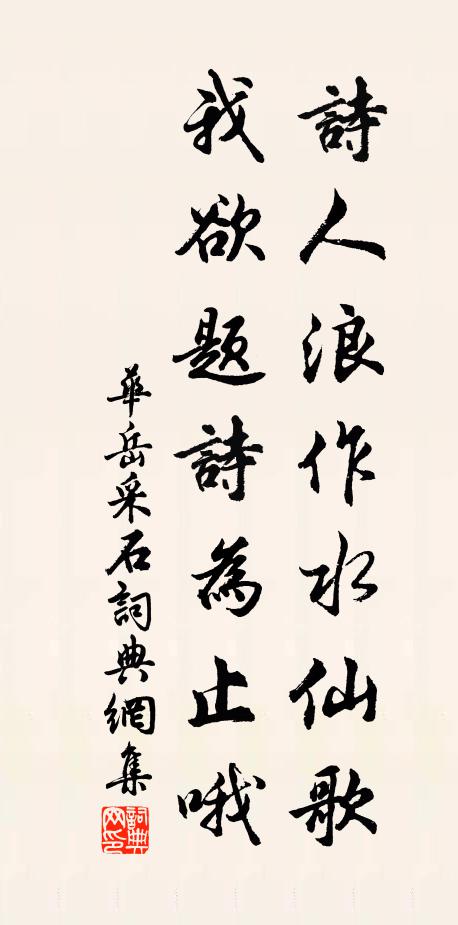 詩人浪作水仙歌
我欲題詩為止哦
華岳采石詞典網集
詞典網印